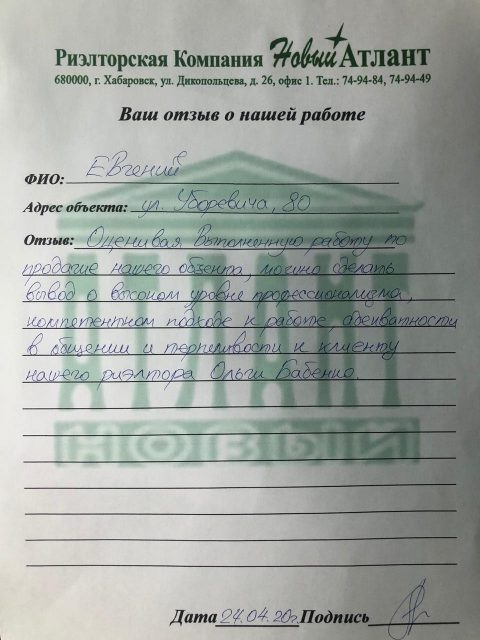 Риэлторская Компания Новый Атлант
680000, г. Хабаровск, ул. Дикопольцева, д. 26, офис 1. Тел.: 74-94-84, 74-94-49
Ваш отзыв о нашей работе
ФИО: Евгений
Адрес объекта: ул. Уборевича, 80
Отзыв: Оценивая выполненную работу по
продаже нашего объекта, можно сделать
вывод о высоком уровне профессионализма,
компетентном подходе к работе, адекватности
в общении и терпеливости к клиенту
нашего риэлтора Ольги Бабенко.
АТЛАНТ
НОВЫЙ
Дата 24.04.20г. Подпись